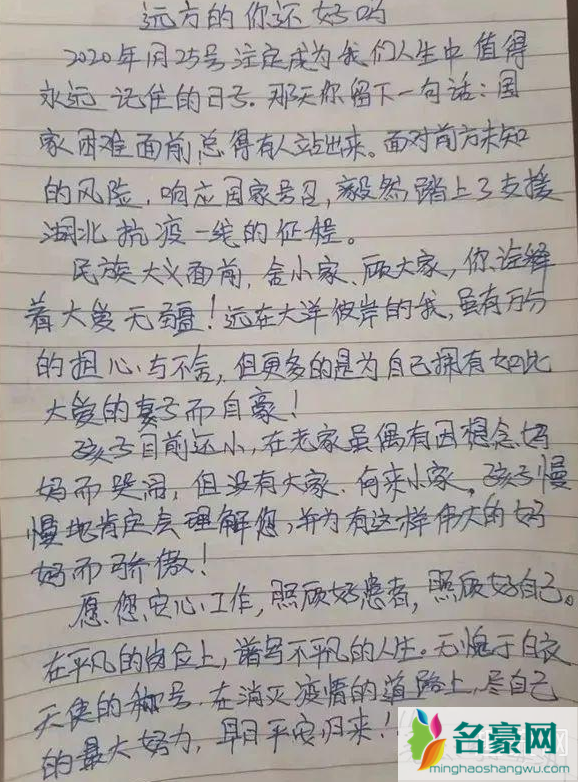 远方的你还好吗
2020年1月25号注定成为我们人生中值得
永远记住的日子。那天你留下一句话：国
家困难面前,总得有人站出来。面对前方未知
的风险，响应国家号召，毅然踏上了支援
湖北抗疫一线的征程。
民族大义面前，舍小家、顾大家，你诠释
着大爱无疆！远在大洋彼岸的我，虽有万分
的担心与不舍，但更多的是为自己拥有如此
大爱的妻子而自豪！
孩子目前还小，在老家虽偶有因想念妈
妈而哭闹，但没有大家，何来小家，孩子慢
慢地肯定会理解您，并为有这样伟大的妈
妈而骄傲！
愿您安心工作，照顾好患者，照顾好自己。
在平凡的岗位上，谱写不平凡的人生。无愧于白衣
天使的称号，在消灭疫情的道路上，尽自己
的最大努力，早日平安归来！
名豪网
minghaoshangwu.com